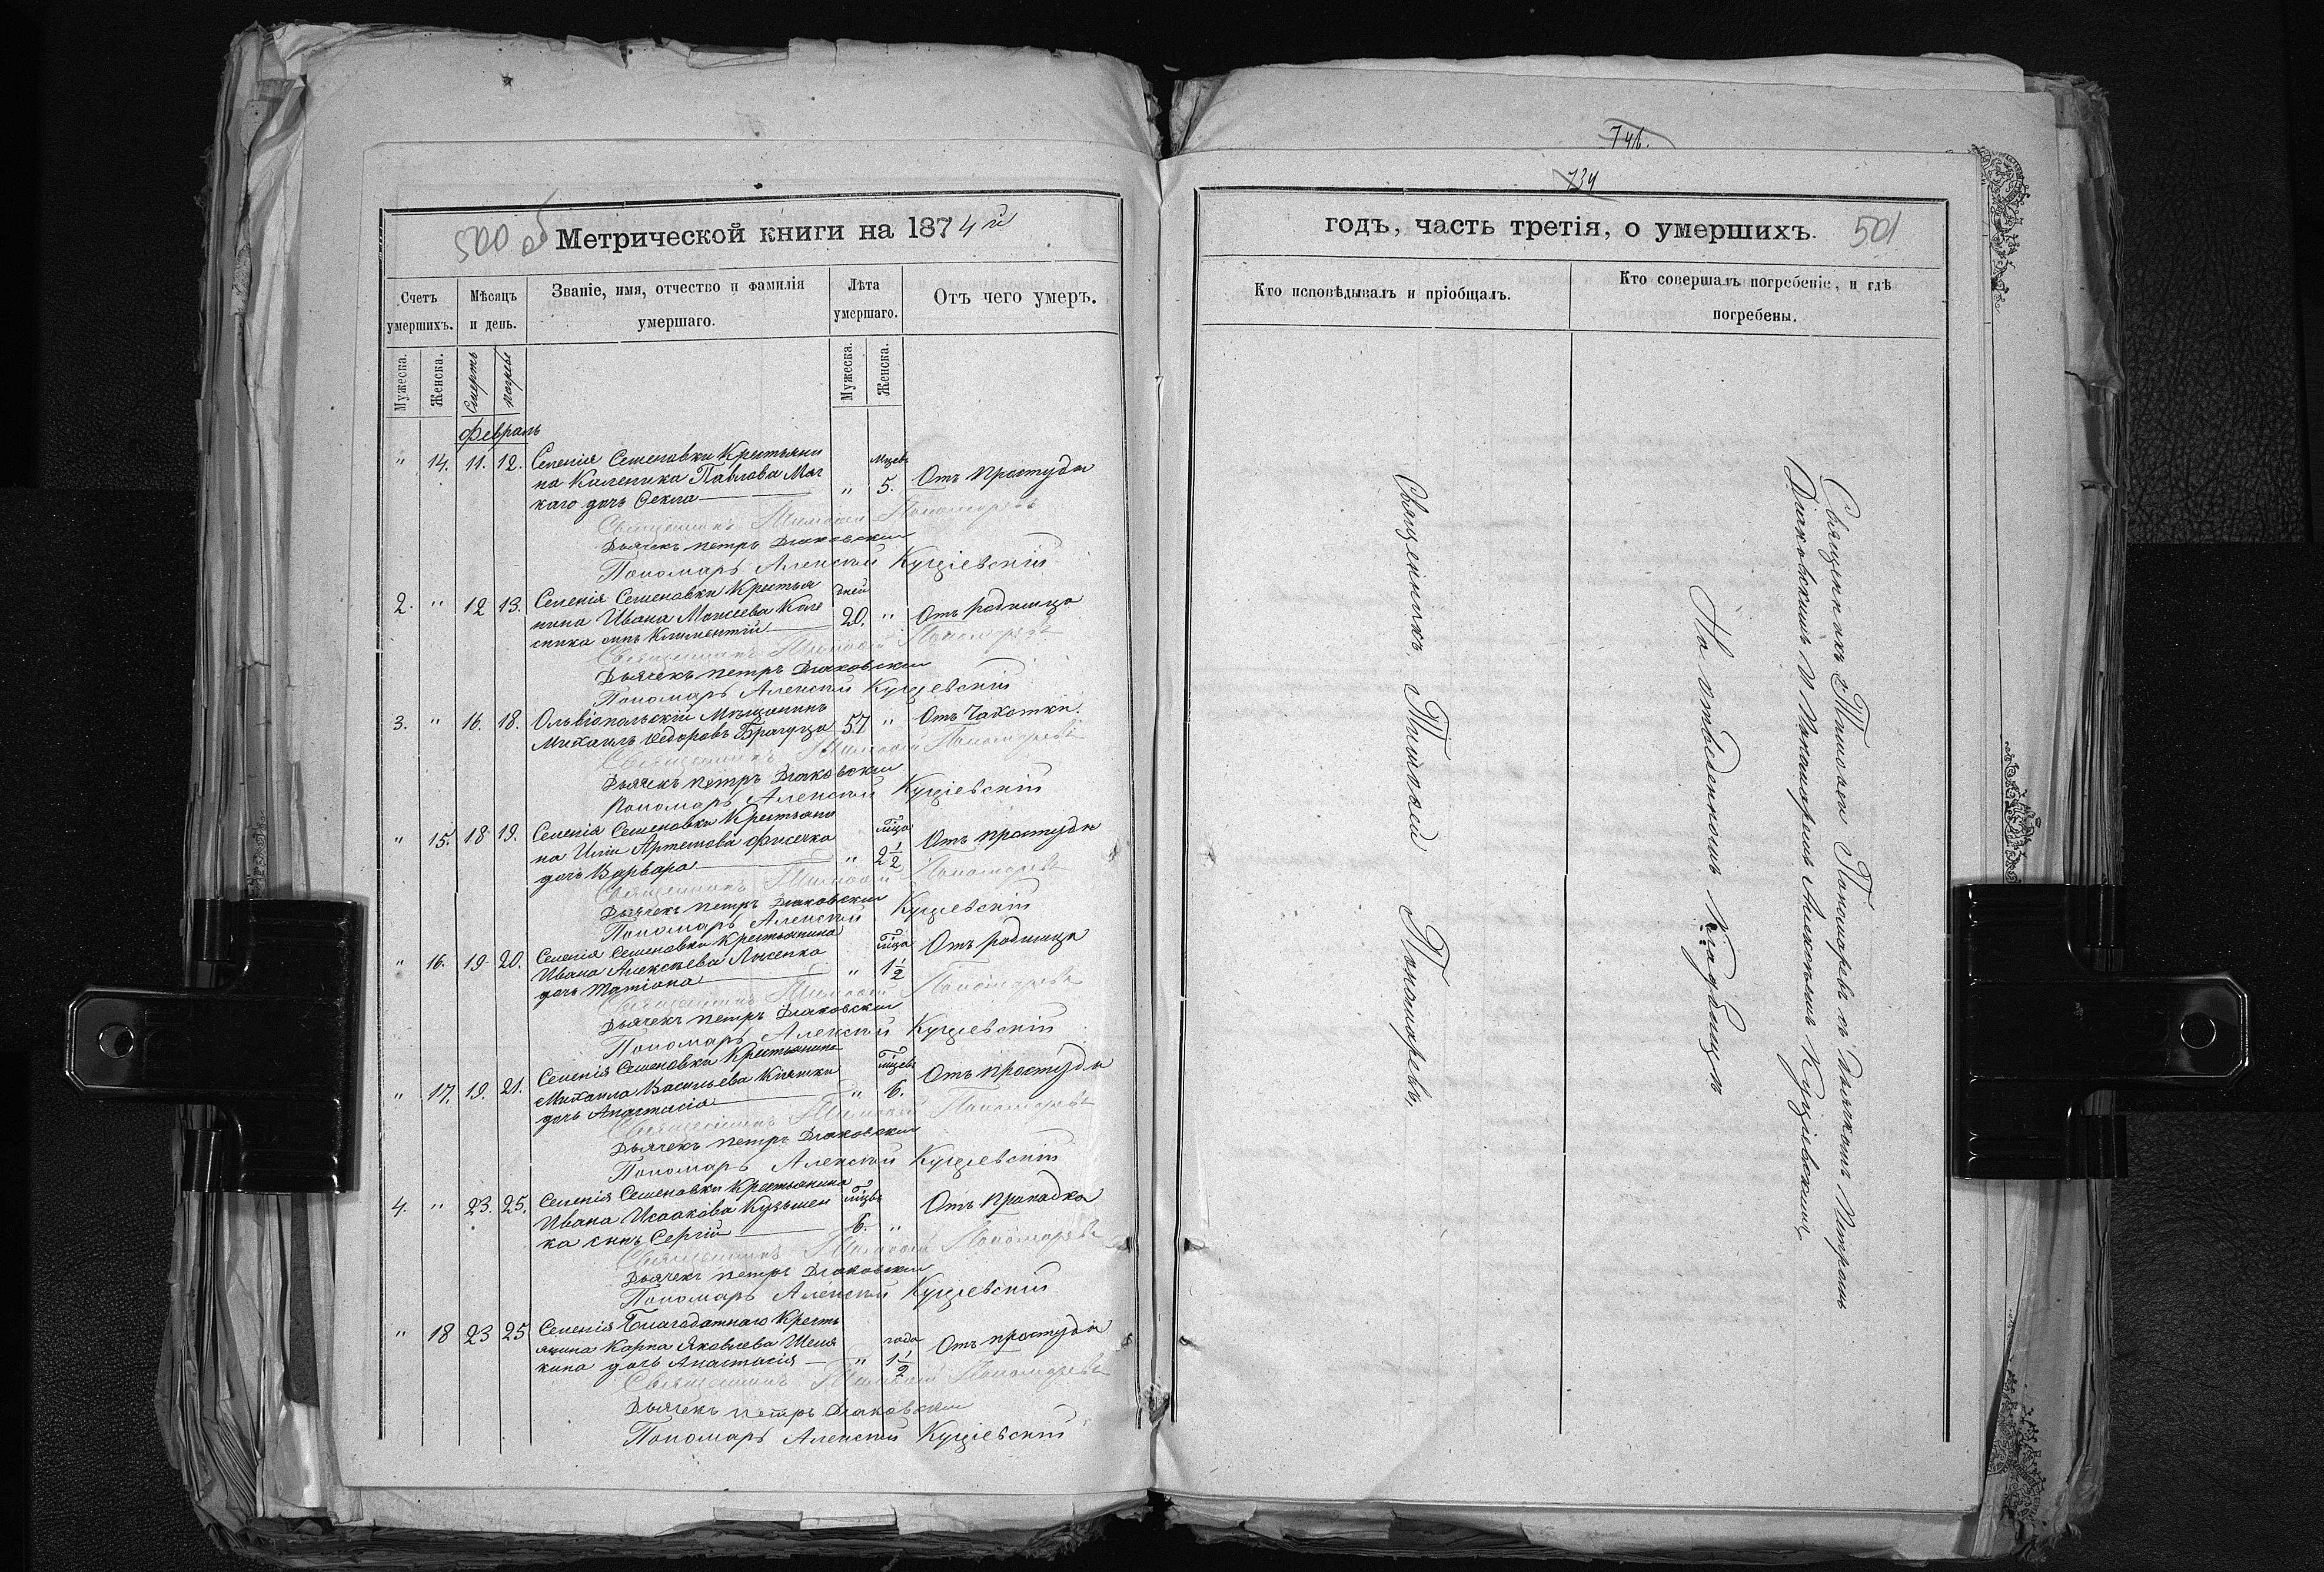 500 об
Метрической книги на 1874 й
Счетъ умершихъ.
Мѣсяцъ и день.
Званіе, имя, отчество и фамилія умершаго.
Лѣта умершаго.
Отъ чего умеръ.
Мужеска.
Женска.
Смерть
погреб
Мужеска.
Женска.
Февраль
" 14. 11. 12. Селенія Семеновки Крестьяни
на Каленика Павлова
каго дочь Ѳекла " Мцевъ 5. Отъ простуды
Священникъ Тимоѳей Пономаревъ
Дьячекъ петръ Дьяковскій
Пономарь Алексѣй Куціевскій
2. " 12 13. Селенія Семеновки Крестья
нина Ивана Моисеева Коле
сника сынъ Климентій дней 20. " Отъ родимца
Священникъ Тимоѳей Пономаревъ
Дьячекъ петръ Дьяковскій
Пономарь Алексѣй Куціевскій
3. " 16. 18. Ольвіопольскій Мѣщанинъ
Михаилъ Ѳедоровъ 57 " Отъ Чахотки.
Священникъ Тимоѳей Пономаревъ
Дьячекъ петръ Дьяковскій
Пономарь Алексѣй Куціевскій
" 15. 18 19. Селенія Семеновки Крестьяни
на Иліи Артемова
дочь Варвара " мца 2 1/2 Отъ простуды
Священникъ Тимоѳей Пономаревъ
Дьячекъ петръ Дьяковскій
Пономарь Алексѣй Куціевскій
" 16. 19 20. Селенія Семеновки Крестьянина
Ивана Алексѣева Лысенка
дочь Татіана " мца 1 1/2 Отъ родимца
Священникъ Тимоѳей Пономаревъ
Дьячекъ петръ Дьяковскій
Пономарь Алексѣй Куціевскій
" 17. 19. 21. Селенія Семеновки Крестьянина
Михаила Васильева
дочь Анастасія " мцевъ 6. Отъ простуды
Священникъ Тимоѳей Пономаревъ
Дьячекъ петръ Дьяковскій
Пономарь Алексѣй Куціевскій
4. " 23. 25. Селенія Семеновки Крестьянина
Ивана Исаакова Кузьмен
ка сынъ Сергій мцвъ 6. " Отъ припадка
Священникъ Тимоѳей Пономаревъ
Дьячекъ петръ Дьяковскій
Пономарь Алексѣй Куціевскій
" 18 23 25 Селенія Благодатнаго Кресть
янина Карпа Яковлева Шеля
кина дочь Анастасія " года 1 1/2 Отъ простуды
Священникъ Тимоѳей Пономаревъ
Дьячекъ петръ Дьяковскій
Пономарь Алексѣй Куціевскій
746.
734
годъ, часть третія, о умершихъ.
501
Кто исповѣдывалъ и пріобщалъ.
Кто совершалъ погребеніе, и гдѣ погребены.
Священникъ Тимоѳей Пономаревъ.
Священникъ Тимоѳей Пономаревъ съ Дьячкомъ Петромъ
Дьяковскимъ и Пономаремъ Алексѣемъ Куціевскимъ
На отведенномъ Кладбищѣ